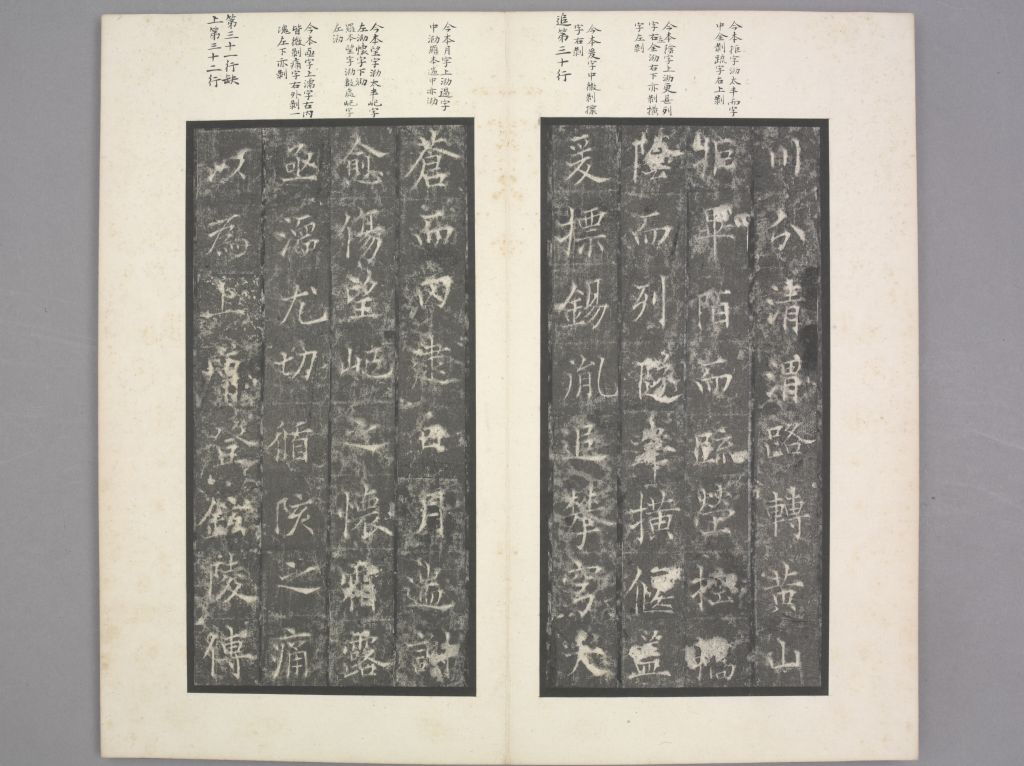 今本拒字泐太半而字
中全剝疏字右上剝
今本陰字上泐更甚列
字右全泐右下亦剝橫
字左剝
今本爰字中微剝標
字右剝
追第三十行
川分清渭路轉黃山
拒平陌而疏塋控橋
陰而列隧峯橫偃蓋
爰標錫胤追攀穹
今本月字上泐遄字
中泐羅本遄中亦泐
今本望字泐太半屺字
左泐懷字下泐
羅本望字泐數處屺字
左泐
今本亟字上濡字右內
皆微剝痛字右外剝一
塊左下亦剝
第三十一行缺
上第三十二行
蒼而內逮日月遄謝
愈傷望屺之懷霜露
亟濡尤切循陔之痛
以為上蘭登陵傳